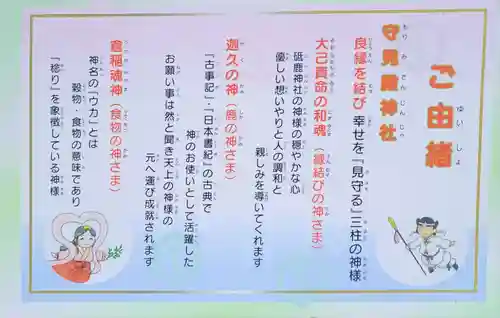 ご由緒
守見殿神社
良縁を結び 幸せを『見守る』三柱の神様
大己貴命の和魂(縁結びの神さま)
砥鹿神社の神様の穏やかな心
優しい思いやりと人の調和と
親しみを導いてくれます
迦久の神(鹿の神さま)
『古事記』・『日本書紀』の古典で
神のお使いとして活躍した
お願い事は然と聞き天上の神様の
元へ運び成就されます
倉稲魂神(食物の神さま)
神名の「ウカ」とは
穀物・食物の意味であり
「稔り」を象徴している神様